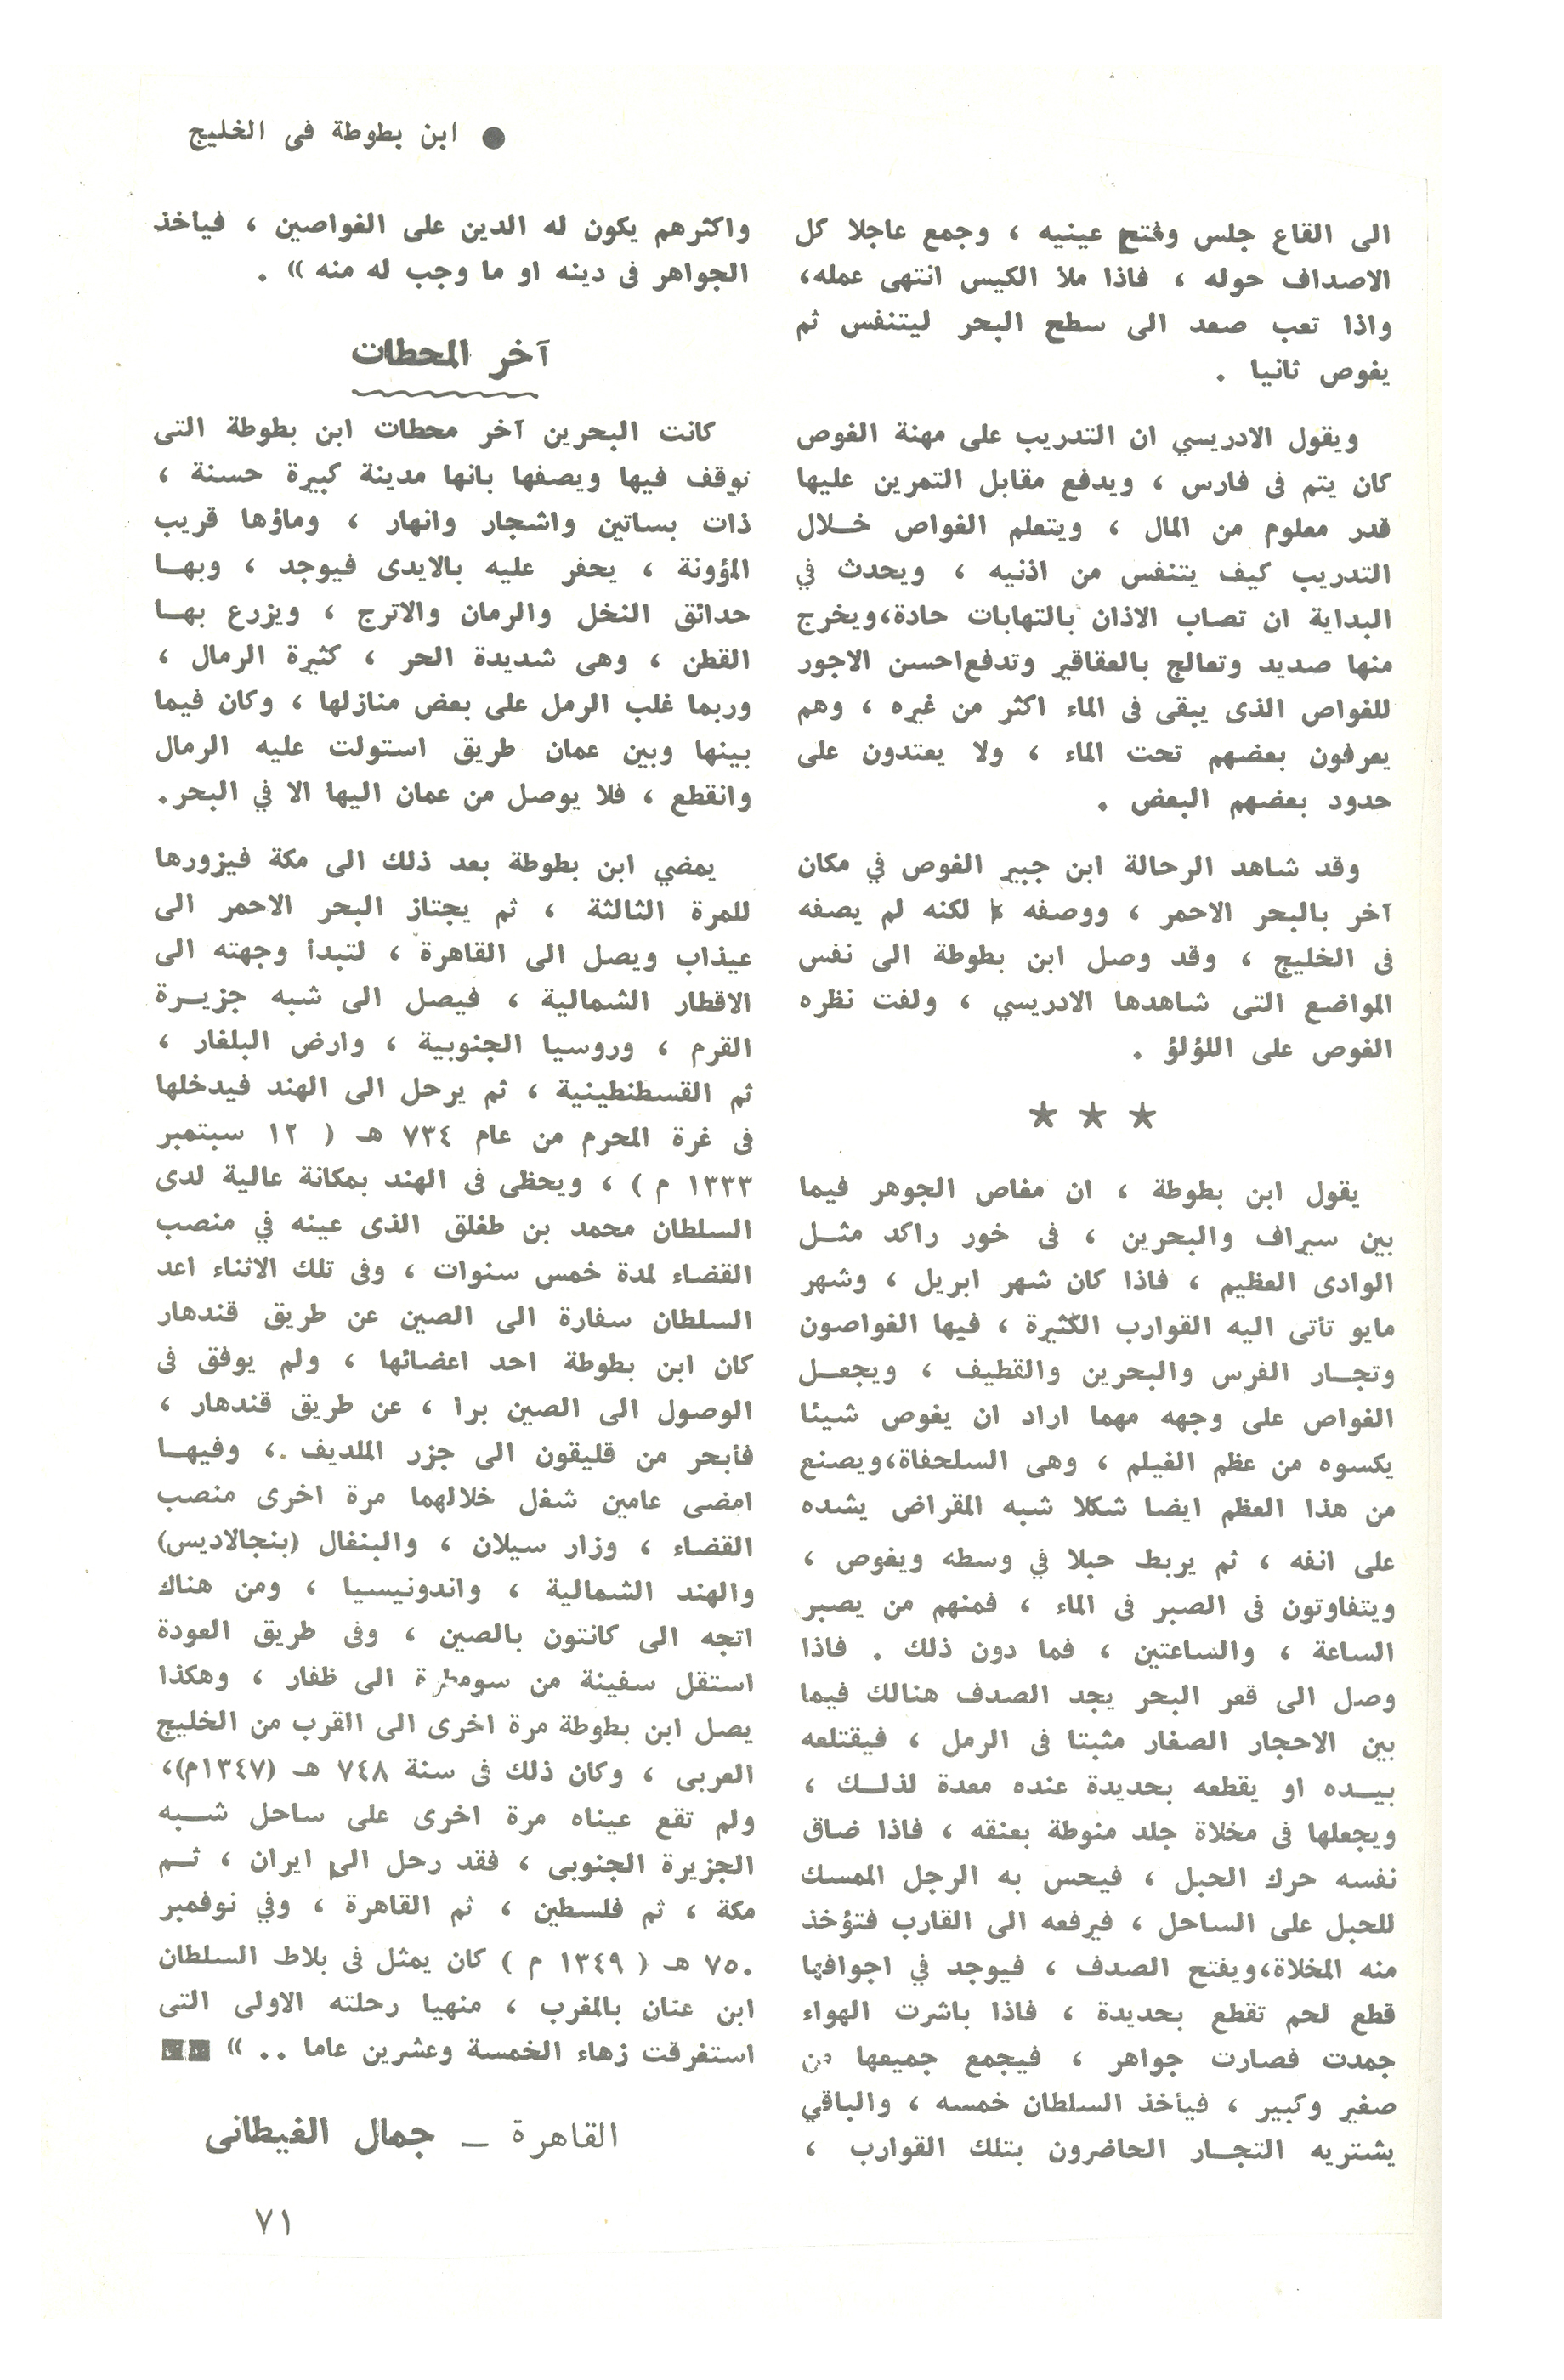 ● ابن بطوطة فى الخليج
الى القاع جلس وفتح عينيه ، وجمع عاجلا كل
الاصداف حوله ، فاذا ملأ الكيس انتهى عمله،
واذا تعب صعد الى سطح البحر ليتنفس ثم
يغوص ثانيا .
ويقول الادريسي ان التدريب على مهنة الغوص
كان يتم فى فارس ، ويدفع مقابل التمرين عليها
قدر معلوم من المال ، ويتعلم الغواص خــلال
التدريب كيف يتنفس من اذنيه ، ويحدث في
البداية ان تصاب الاذان بالتهابات حادة،ويخرج
منها صديد وتعالج بالعقاقير وتدفع احسن الاجور
للغواص الذى يبقى فى الماء اكثر من غيره ، وهم
يعرفون بعضهم تحت الماء ، ولا يعتدون على
حدود بعضهم البعض .
وقد شاهد الرحالة ابن جبير الغوص في مكان
آخر بالبحر الاحمر ، ووصفه ، لكنه لم يصفه
فى الخليج ، وقد وصل ابن بطوطة الى نفس
المواضع التى شاهدها الادريسي ، ولفت نظره
الغوص على اللؤلؤ .
★ ★ ★
يقول ابن بطوطة ، ان مغاص الجوهر فيما
بين سيراف والبحرين ، فى خور راكد مثــل
الوادى العظيم ، فاذا كان شهر ابريل ، وشهر
مايو تأتى اليه القوارب الكثيرة ، فيها الغواصون
وتجــار الفرس والبحرين والقطيف ، ويجعــل
الغواص على وجهه مهما اراد ان يغوص شيئا
يكسوه من عظم الغيلم ، وهى السلحفاة،ويصنع
من هذا العظم ايضا شكلا شبه المقراض يشده
على انفه ، ثم يربط حبلا في وسطه ويغوص ،
ويتفاوتون فى الصبر فى الماء ، فمنهم من يصبر
الساعة ، والساعتين ، فما دون ذلك . فاذا
وصل الى قعر البحر يجد الصدف هنالك فيما
بين الاحجار الصغار مثبتا فى الرمل ، فيقتلعه
بيــده او يقطعه بحديدة عنده معدة لذلــك ،
ويجعلها فى مخلاة جلد منوطة بعنقه ، فاذا ضاق
نفسه حرك الحبل ، فيحس به الرجل الممسك
للحبل على الساحل ، فيرفعه الى القارب فتؤخذ
منه المخلاة،ويفتح الصدف ، فيوجد في اجوافها
قطع لحم تقطع بحديدة ، فاذا باشرت الهواء
جمدت فصارت جواهر ، فيجمع جميعها من
صغير وكبير ، فيأخذ السلطان خمسه ، والباقي
يشتريه التجــار الحاضرون بتلك القوارب ،
واكثرهم يكون له الدين على الغواصين ، فيأخذ
الجواهر فى دينه او ما وجب له منه » .
آخر المحطات
كانت البحرين آخر محطات ابن بطوطة التى
توقف فيها ويصفها بانها مدينة كبيرة حسنة ،
ذات بساتين واشجار وانهار ، وماؤها قريب
المؤونة ، يحفر عليه بالايدى فيوجد ، وبهــا
حدائق النخل والرمان والاترج ، ويزرع بهــا
القطن ، وهى شديدة الحر ، كثيرة الرمال ،
وربما غلب الرمل على بعض منازلها ، وكان فيما
بينها وبين عمان طريق استولت عليه الرمال
وانقطع ، فلا يوصل من عمان اليها الا في البحر.
يمضي ابن بطوطة بعد ذلك الى مكة فيزورها
للمرة الثالثة ، ثم يجتاز البحر الاحمر الى
عيذاب ويصل الى القاهرة ، لتبدأ وجهته الى
الاقطار الشمالية ، فيصل الى شبه جزيــرة
القرم ، وروسيا الجنوبية ، وارض البلغار ،
ثم القسطنطينية ، ثم يرحل الى الهند فيدخلها
فى غرة المحرم من عام ٧٣٤ هـ ( ١٢ سبتمبر
١٣٣٣ م ) ، ويحظى فى الهند بمكانة عالية لدى
السلطان محمد بن طغلق الذى عينه في منصب
القضاء لمدة خمس سنوات ، وفى تلك الاثناء اعد
السلطان سفارة الى الصين عن طريق قندهار
كان ابن بطوطة احد اعضائها ، ولم يوفق فى
الوصول الى الصين برا ، عن طريق قندهار ،
فأبحر من قليقون الى جزر الملديف ، وفيهــا
امضى عامين شغل خلالهما مرة اخرى منصب
القضاء ، وزار سيلان ، والبنغال (بنجالاديس)
والهند الشمالية ، واندونيسيا ، ومن هناك
اتجه الى كانتون بالصين ، وفى طريق العودة
استقل سفينة من سومطرة الى ظفار ، وهكذا
يصل ابن بطوطة مرة اخرى الى القرب من الخليج
العربى ، وكان ذلك فى سنة ٧٤٨ هـ (١٣٤٧م)،
ولم تقع عيناه مرة اخرى على ساحل شــبه
الجزيرة الجنوبى ، فقد رحل الى ايران ، ثــم
مكة ، ثم فلسطين ، ثم القاهرة ، وفي نوفمبر
٧٥٠ هـ ( ١٣٤٩ م ) كان يمثل فى بلاط السلطان
ابن عنان بالمغرب ، منهيا رحلته الاولى التى
استغرقت زهاء الخمسة وعشرين عاما .. »
القاهرة _ جمال الغيطانى
٧١